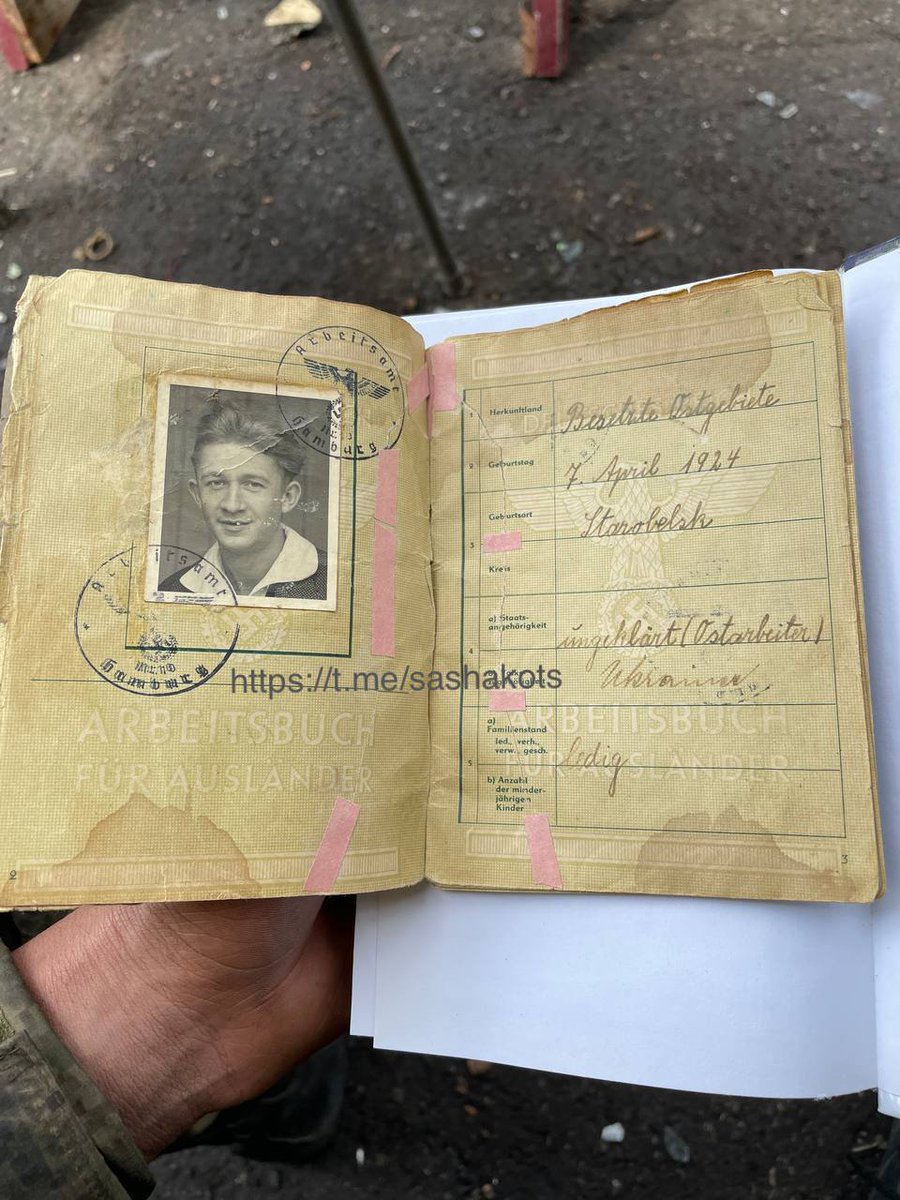 Arbeitsamt
Hamburg
Arbeitsamt
Hamburg
ARBEITSBUCH
FÜR AUSLÄNDER
2
1
Herkunftland
Besetzte Ostgebiete
2
Geburtstag
7. April 1924
Geburtsort
Starobelsk
3
Kreis
a) Staats-
angehörigkeit
ungeklärt (Ostarbeiter)
4
Ukrainer
a)
Familienstand
led., verh.,
verw., gesch.
ledig
5
b) Anzahl
der minder-
jährigen
Kinder
ARBEITSBUCH
FÜR AUSLÄNDER
3
https://t.me/sashakots